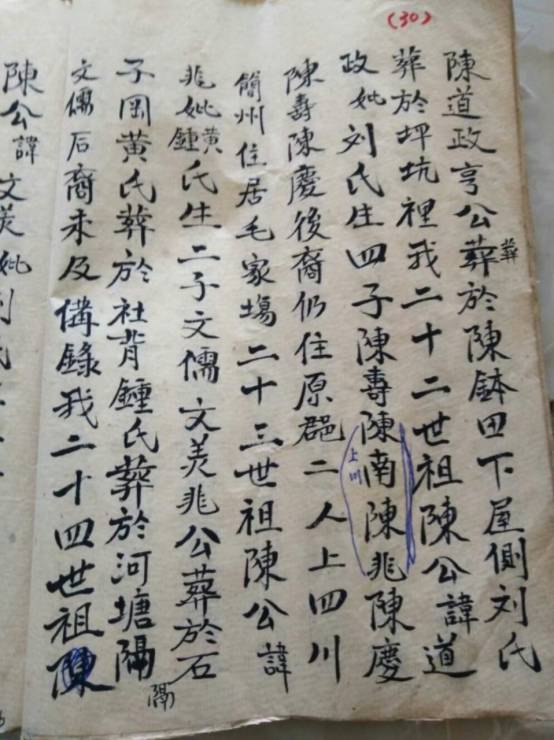 (30)
陳道政亨公葬於陳鉢田下屋側刘氏
葬
葬於坪坑裡我二十二世祖陳公諱道
政妣刘氏生四子陳壽陳南陳兆陳慶
上川
陳壽陳慶後裔仍住原郡二人上四川
簡州住居毛家塲二十三世祖陳公諱
兆妣黃鍾氏生二子文儒文美兆公葬於石
子岡黄氏葬於社背鍾氏葬於河塘隔
隔
文儒后裔未及僃錄我二十四世祖陳
陳公諱文美妣刘氏